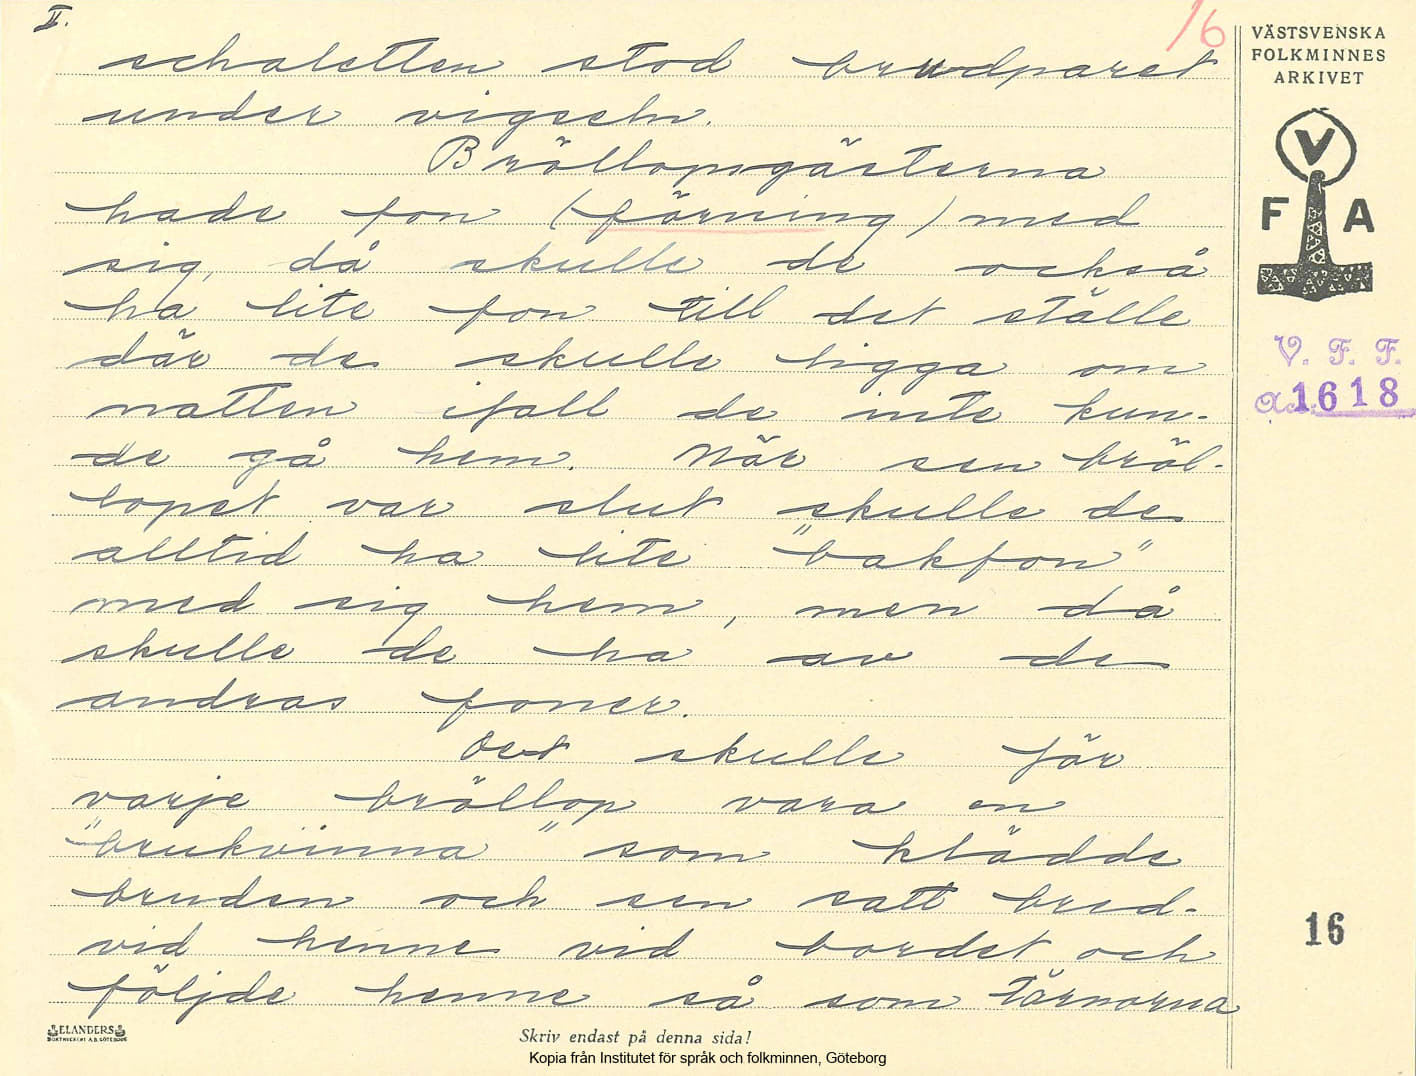 II.
16
schaletten stod brudparet
under vigseln.
Bröllopsgästerna
hade fon (förning) med
sig, då skulle de också
ha lite fon till det ställe
där de skulle ligga om
natten ifall de inte kun-
de gå hem. När sen bröl-
lopet var slut skulle de
alltid ha lite "bakfon"
med sig hem, men då
skulle de ha av de
andras foner.
Det skulle för
varje bröllop vara en
"brukvinna" som klädde
bruden och sen satt bred-
vid henne vid bordet och
följde henne så som tärnorna
ELANDERS
BOKTRYCKERI A.B. GÖTEBORG
Skriv endast på denna sida!
Kopia från Institutet för språk och folkminnen, Göteborg
VÄSTSVENSKA
FOLKMINNES
ARKIVET
V
F A
V. F. F.
1618
16